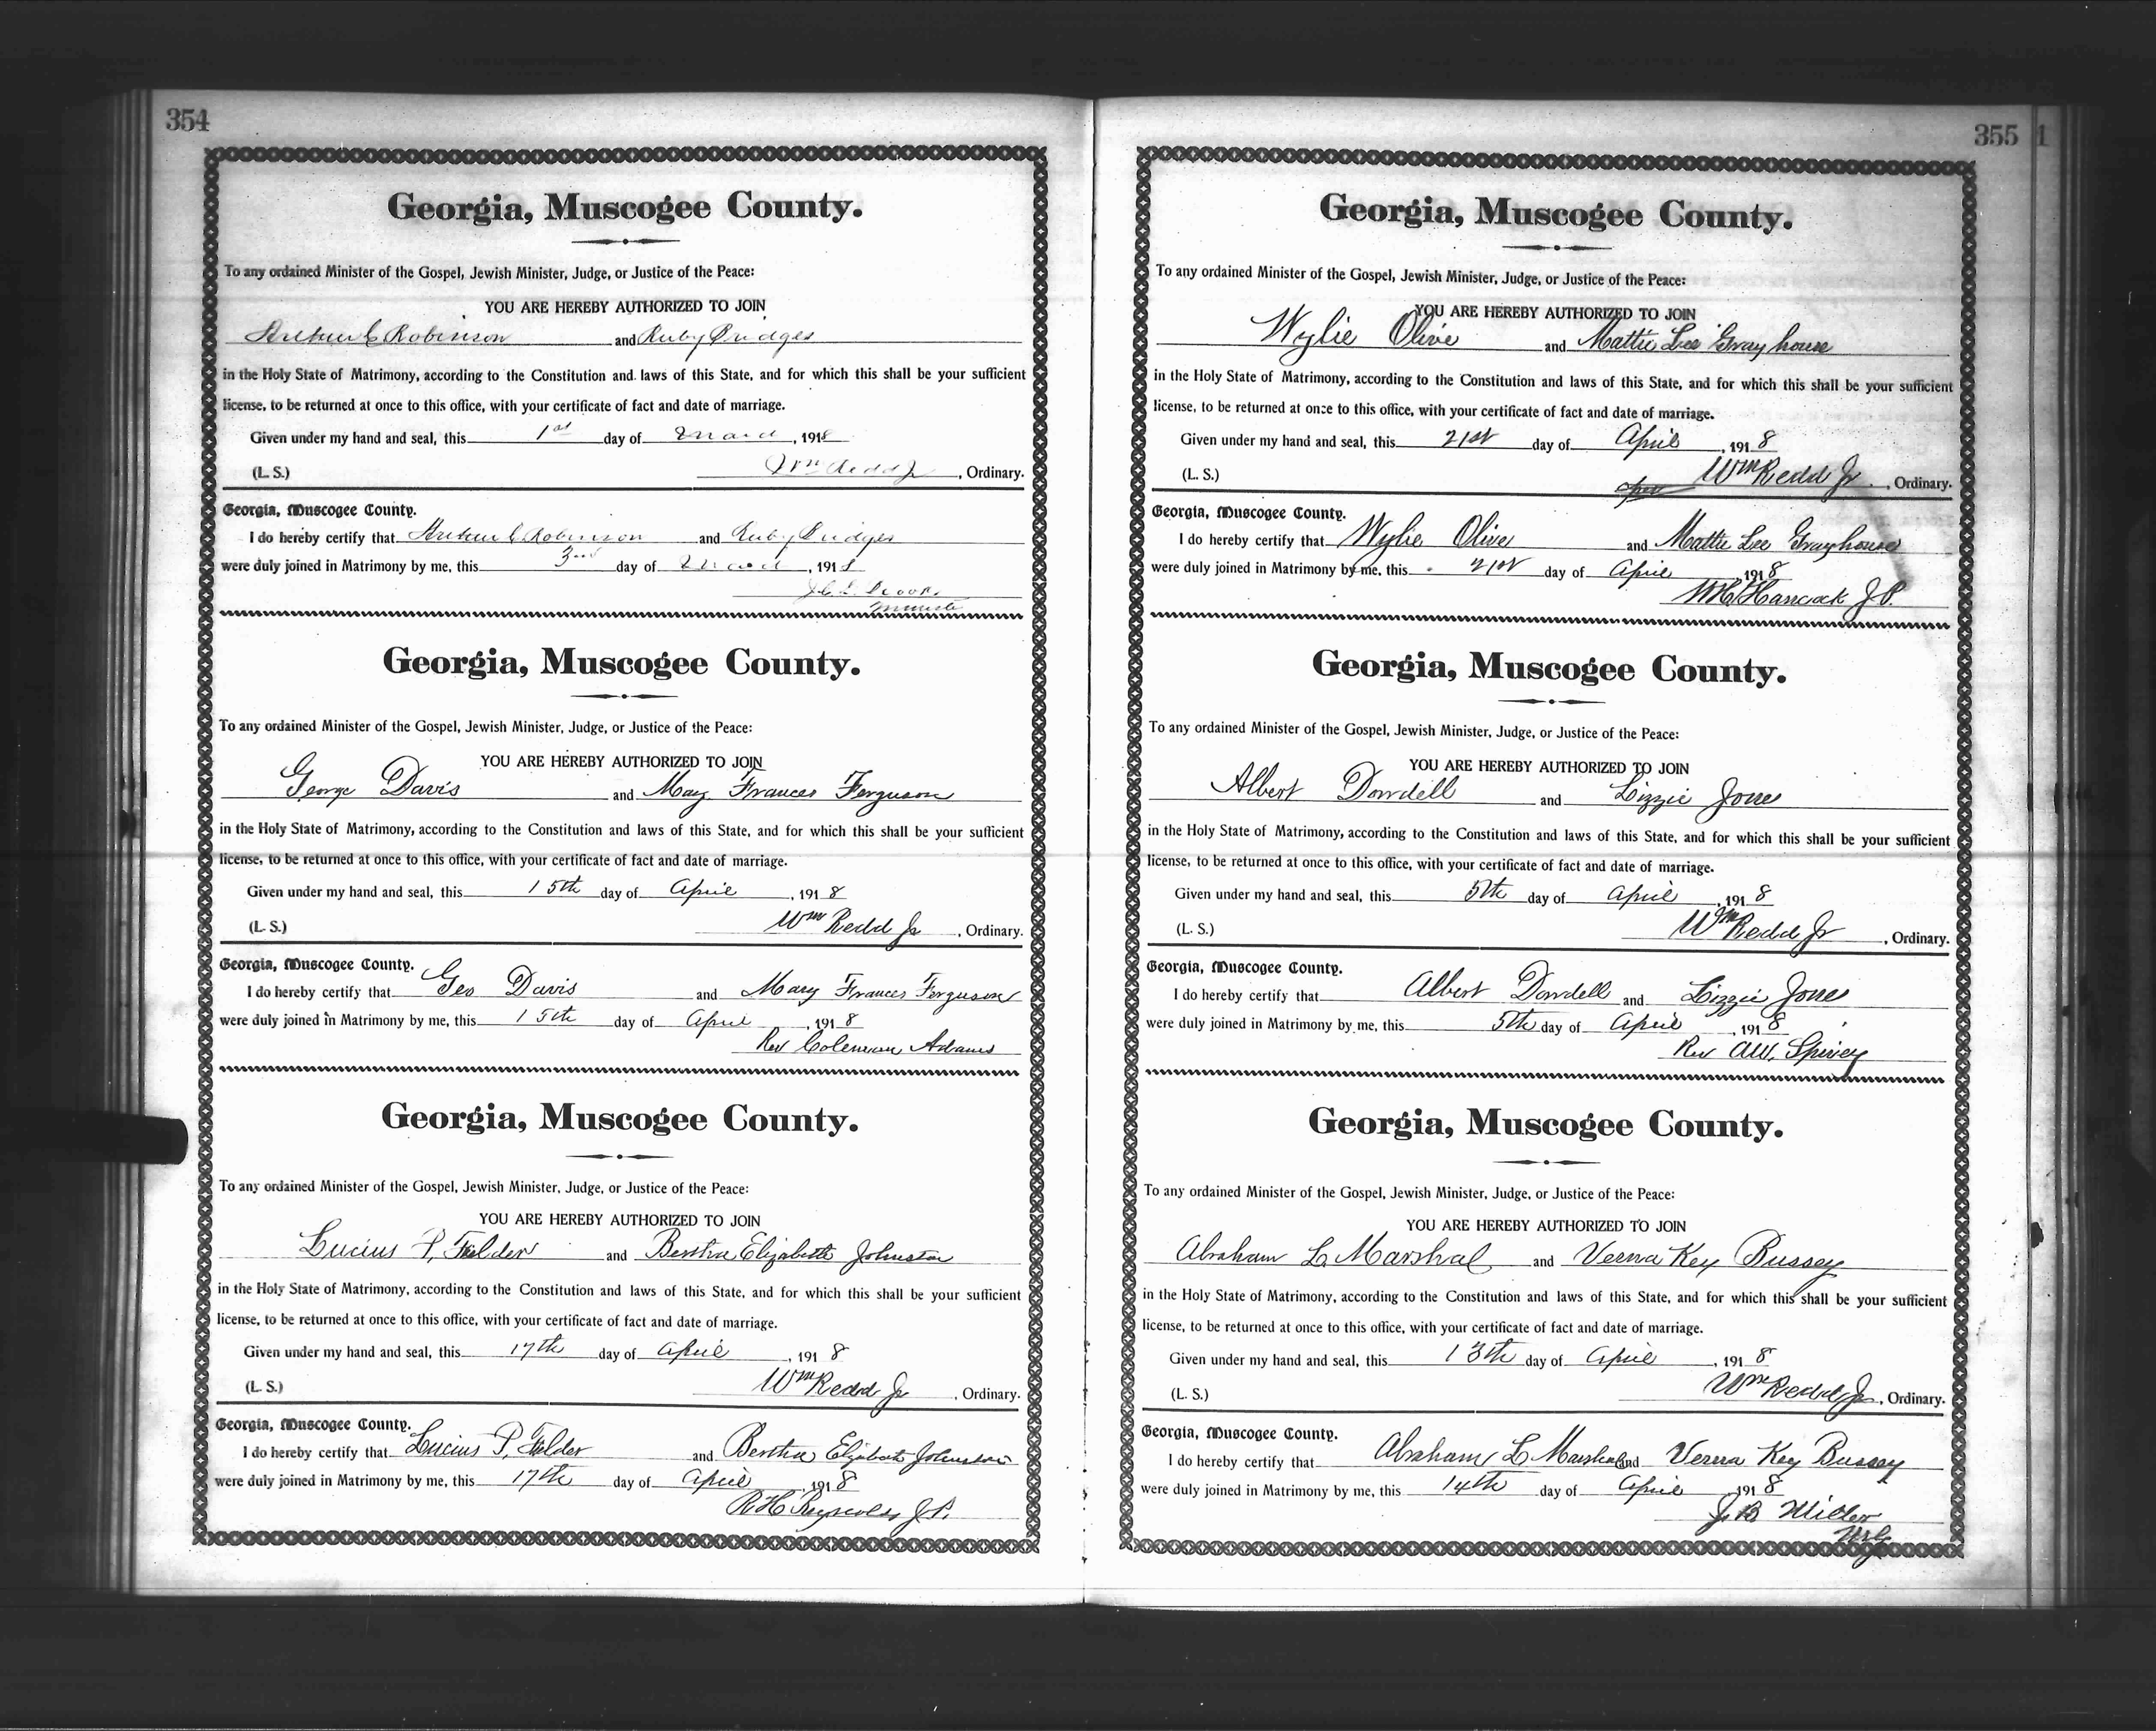 354
Georgia, Muscogee County.
To any ordained Minister of the Gospel, Jewish Minister, Judge, or Justice of the Peace:
YOU ARE HEREBY AUTHORIZED TO JOIN
Arthur C Robinson and Ruby Bridges
in the Holy State of Matrimony, according to the Constitution and laws of this State, and for which this shall be your sufficient
license, to be returned at once to this office, with your certificate of fact and date of marriage.
Given under my hand and seal, this 1st day of March, 1918
(L. S.) Wm Redd Jr, Ordinary.
Georgia, Muscogee County.
I do hereby certify that Arthur C Robinson and Ruby Bridges
were duly joined in Matrimony by me, this 3rd day of March, 1918
Minister
Georgia, Muscogee County.
To any ordained Minister of the Gospel, Jewish Minister, Judge, or Justice of the Peace:
YOU ARE HEREBY AUTHORIZED TO JOIN
George Davis and Mary Frances Ferguson
in the Holy State of Matrimony, according to the Constitution and laws of this State, and for which this shall be your sufficient
license, to be returned at once to this office, with your certificate of fact and date of marriage.
Given under my hand and seal, this 15th day of April, 1918
(L. S.) Wm Redd Jr, Ordinary.
Georgia, Muscogee County.
I do hereby certify that Geo Davis and Mary Frances Ferguson
were duly joined in Matrimony by me, this 15th day of April, 1918
Rev Coleman Adams
Georgia, Muscogee County.
To any ordained Minister of the Gospel, Jewish Minister, Judge, or Justice of the Peace:
YOU ARE HEREBY AUTHORIZED TO JOIN
Lucius P. Felder and Bertha Elizabeth Johnston
in the Holy State of Matrimony, according to the Constitution and laws of this State, and for which this shall be your sufficient
license, to be returned at once to this office, with your certificate of fact and date of marriage.
Given under my hand and seal, this 17th day of April, 1918
(L. S.) Wm Redd Jr, Ordinary.
Georgia, Muscogee County.
I do hereby certify that Lucius P. Felder and Bertha Elizabeth Johnston
were duly joined in Matrimony by me, this 17th day of April, 1918
R H Reynolds J.P.
355 1
Georgia, Muscogee County.
To any ordained Minister of the Gospel, Jewish Minister, Judge, or Justice of the Peace:
YOU ARE HEREBY AUTHORIZED TO JOIN
Wylie Olive and Mattie Lee Grayhouse
in the Holy State of Matrimony, according to the Constitution and laws of this State, and for which this shall be your sufficient
license, to be returned at once to this office, with your certificate of fact and date of marriage.
Given under my hand and seal, this 21st day of April, 1918
(L. S.) Wm Redd Jr, Ordinary.
Georgia, Muscogee County.
I do hereby certify that Wylie Olive and Mattie Lee Grayhouse
were duly joined in Matrimony by me, this 21st day of April, 1918
Hancock J.P.
Georgia, Muscogee County.
To any ordained Minister of the Gospel, Jewish Minister, Judge, or Justice of the Peace:
YOU ARE HEREBY AUTHORIZED TO JOIN
Albert Dowdell and Lizzie Jones
in the Holy State of Matrimony, according to the Constitution and laws of this State, and for which this shall be your sufficient
license, to be returned at once to this office, with your certificate of fact and date of marriage.
Given under my hand and seal, this 5th day of April, 1918
(L. S.) Wm Redd Jr, Ordinary.
Georgia, Muscogee County.
I do hereby certify that Albert Dowdell and Lizzie Jones
were duly joined in Matrimony by me, this 5th day of April, 1918
Rev A.W. Spivey
Georgia, Muscogee County.
To any ordained Minister of the Gospel, Jewish Minister, Judge, or Justice of the Peace:
YOU ARE HEREBY AUTHORIZED TO JOIN
Abraham L. Marshal and Verna Key Bussey
in the Holy State of Matrimony, according to the Constitution and laws of this State, and for which this shall be your sufficient
license, to be returned at once to this office, with your certificate of fact and date of marriage.
Given under my hand and seal, this 13th day of April, 1918
(L. S.) Wm Redd Jr, Ordinary.
Georgia, Muscogee County.
I do hereby certify that Abraham L Marshal and Verna Key Bussey
were duly joined in Matrimony by me, this 14th day of April, 1918
J B Miller